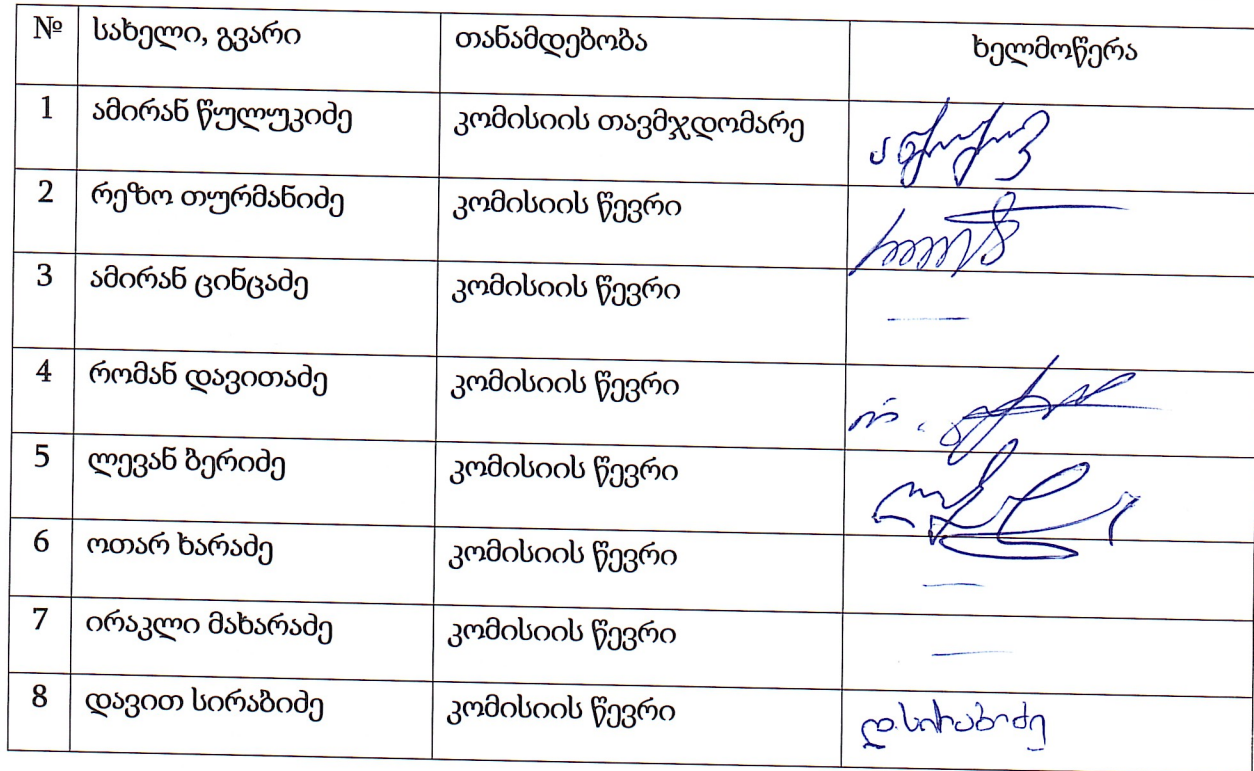 № სახელი, გვარი თანამდებობა ხელმოწერა
1 ამირან წულუკიძე კომისიის თავმჯდომარე
2 რეზო თურმანიძე კომისიის წევრი
3 ამირან ცინცაძე კომისიის წევრი —
4 რომან დავითაძე კომისიის წევრი
5 ლევან ბერიძე კომისიის წევრი
6 ოთარ ხარაძე კომისიის წევრი —
7 ირაკლი მახარაძე კომისიის წევრი —
8 დავით სირაბიძე კომისიის წევრი დ. სირაბიძე